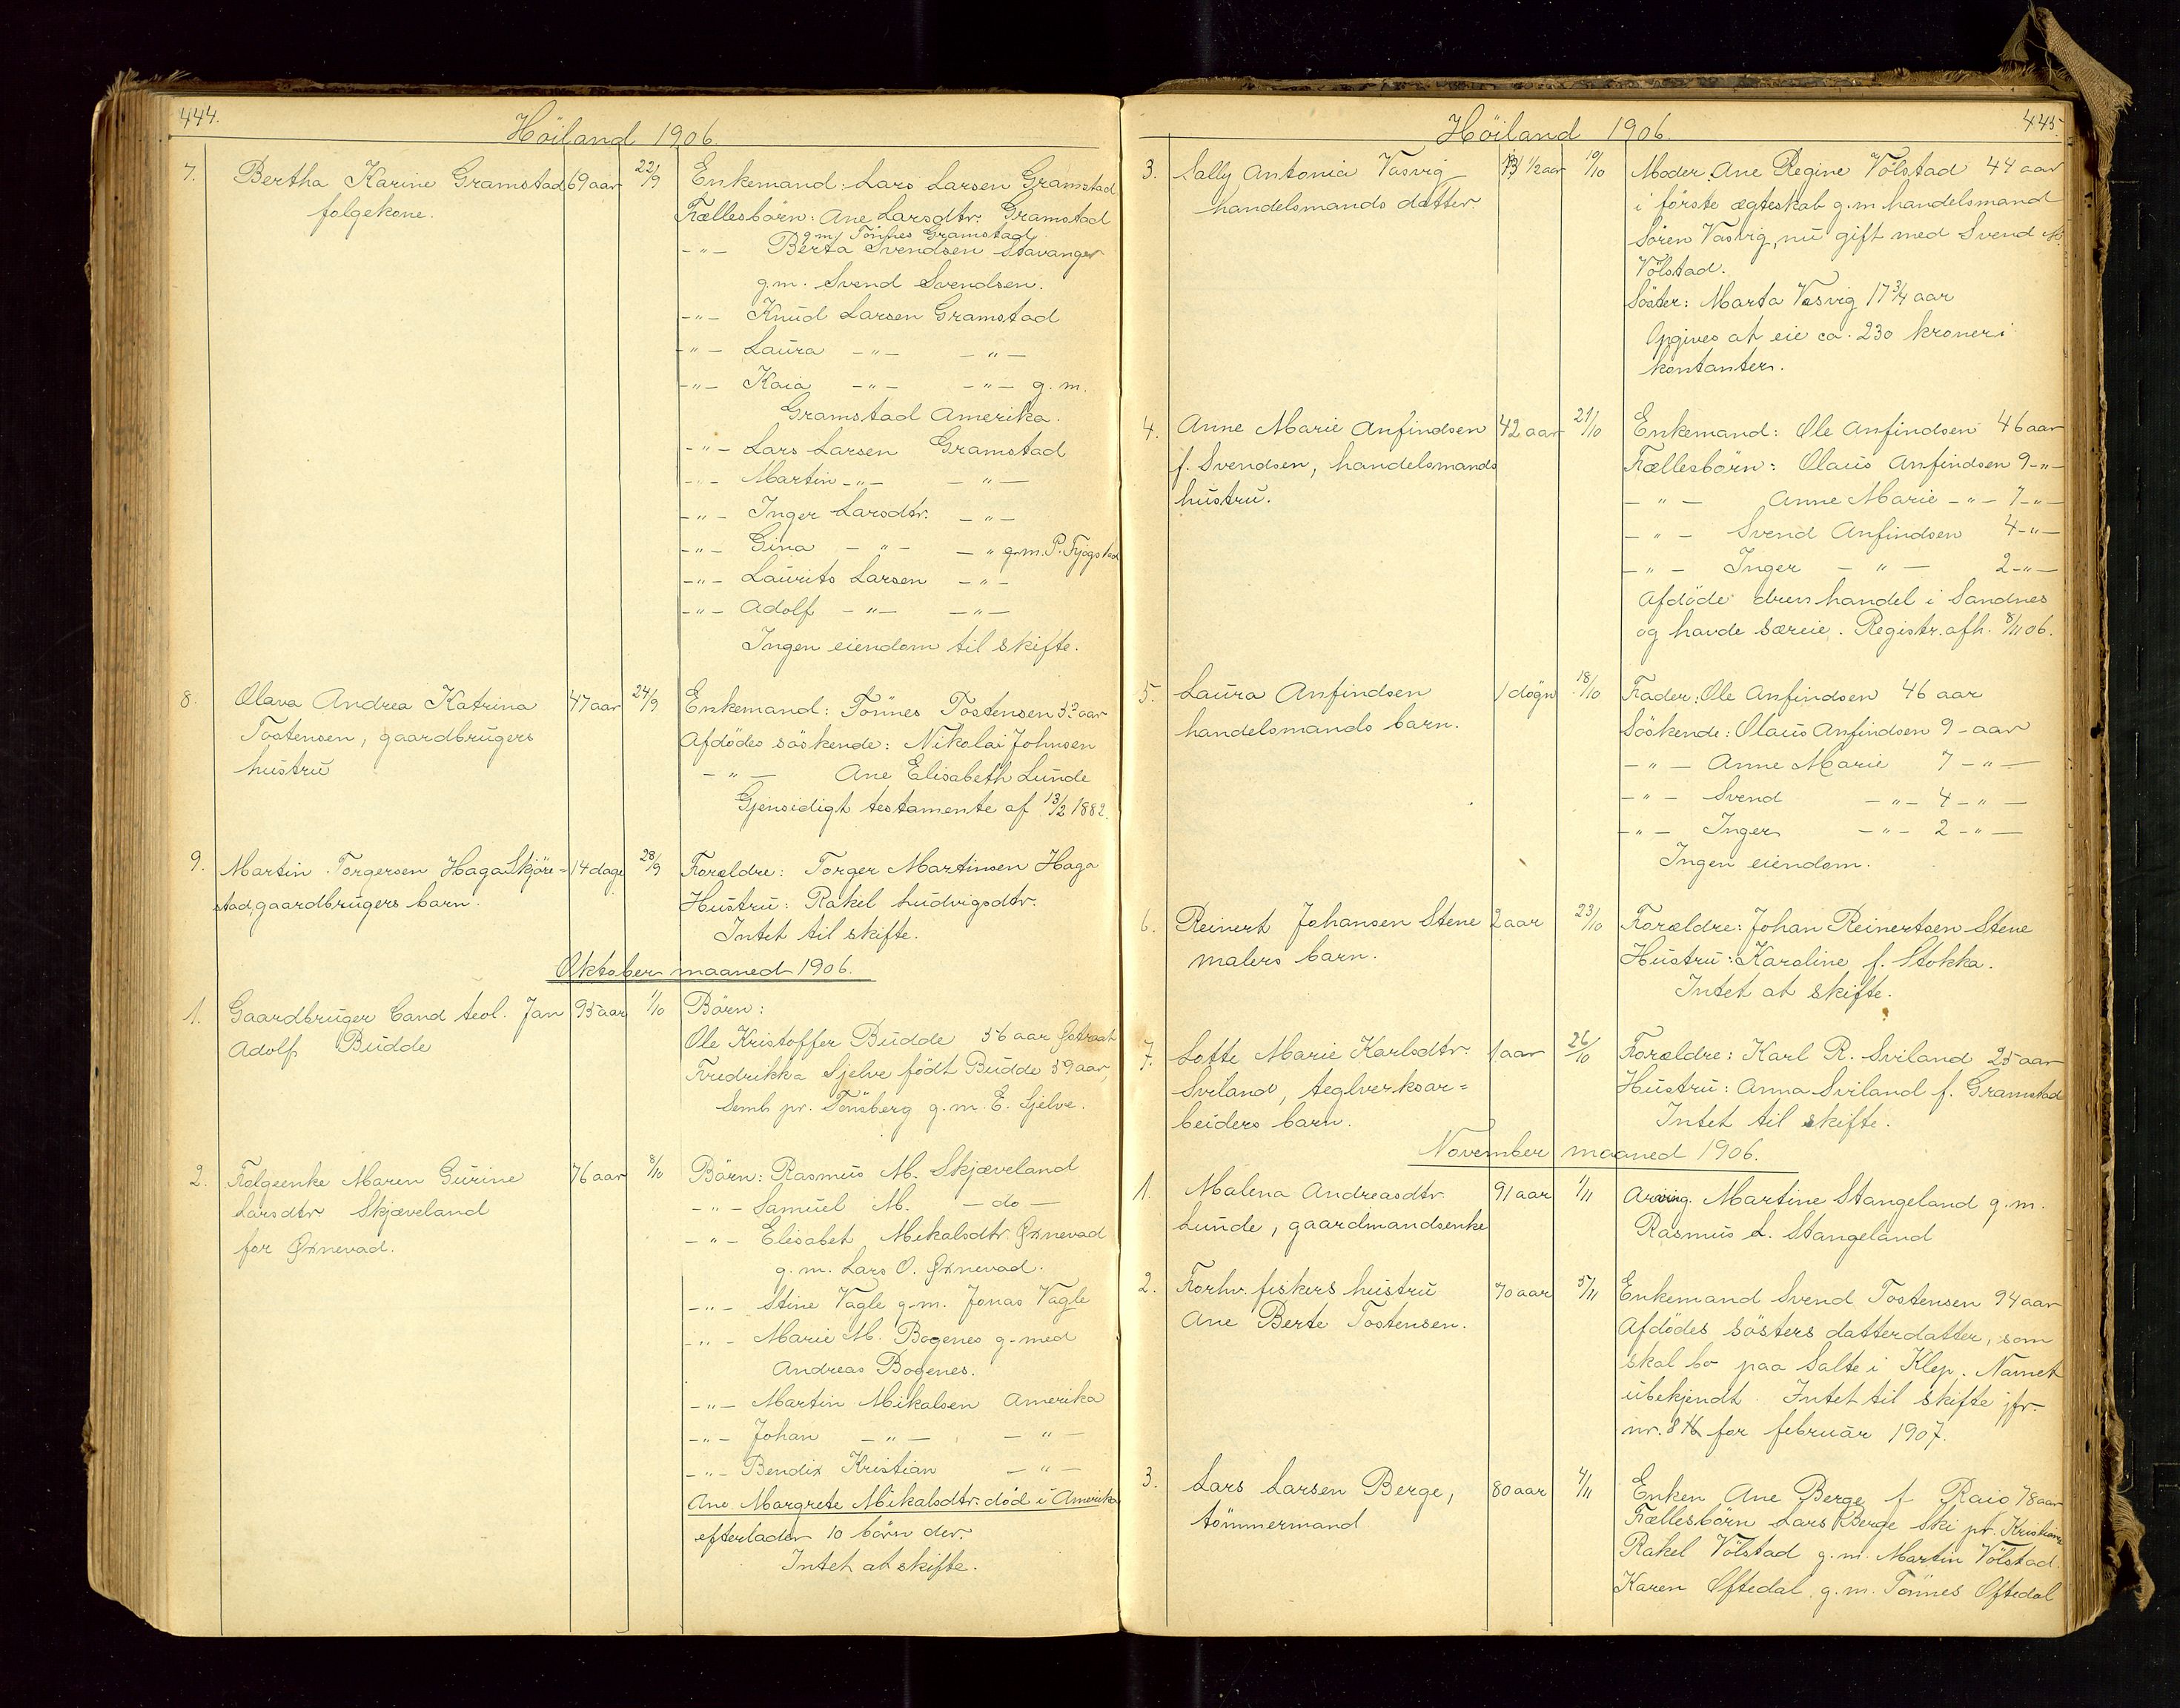 444.
Höiland 1906.
7. Bertha Karine Gramstad 69 aar 22/9 Enkemand: Lars Larsen Gramstad
folgekone. Fællesbörn: Ane Larsdtr. Gramstad
g.m. Tönnes Gramstad
-"- Berta Svendsen Stavanger
g.m. Svend Svendsen.
-"- Knud Larsen Gramstad
-"- Laura -"- -"-
-"- Kaia -"- -"- g.m.
Gramstad Amerika.
-"- Lars Larsen Gramstad
-"- Martin -"- -"-
-"- Inger Larsdtr. -"-
-"- Gina -"- -"- g.m. P. Fjogstad
-"- Laurits Larsen -"-
-"- Adolf -"- -"-
Ingen eiendom til skifte.
8. Olava Andrea Katrina 47 aar 24/9 Enkemand: Tönnes Tostensen aar
Tostensen, gaardbrugers Afdödes söskende: Nikolai Johnsen
hustru -"- Ane Elisabeth Lunde
Gjensidigt testamente af 13/2 1882.
9. Martin Torgersen Haga Skjöre- 14 dage 28/9 Forældre: Torger Martinsen Haga
stad, gaardbrugers barn. Hustru: Rakel Ludvigsdtr.
Intet til skifte.
Oktober maaned 1906.
1. Gaardbruger Cand teol. Jan 95 aar 1/10 Börn:
Adolf Budde Ole Kristoffer Budde 56 aar Östraat
Fredrikka Sjelve födt Budde 59 aar,
Semb pr. Tönsberg g.m. E. Sjelve.
2. Folgeenke Maren Gurine 76 aar 8/10 Börn: Rasmus M. Skjæveland
Larsdtr. Skjæveland -"- Samuel M. -do-
for Öxnevad. -"- Elisabet Mikalsdtr. Öxnevad
g.m. Lars O. Öxnevad.
-"- Stine Vagle g.m. Jonas Vagle
-"- Marie M. Bogenes g. med
Andreas Bogenes.
-"- Martin Mikalsen Amerika
-"- Johan -"- -"-
-"- Bendix Kristian -"-
Ane Margrete Mikalsdtr. död i Amerika
efterlader 10 börn der.
Intet at skifte.
445.
Höiland 1906.
3. Sally Antonia Vasvig 13 1/2 aar 10/10 Moder: Ane Regine Völstad 44 aar
handelsmands datter. i förste ægteskab g.m handelsmand
Sören Vasvig, nu gift med Svend M.
Völstad.
Söster: Marta Vasvig 17 3/4 aar
Opgives at eie ca. 230 kroner i
kontanter.
4. Anne Marie Anfindsen 42 aar 21/10 Enkemand: Ole Anfindsen 46 aar
f. Svendsen, handelsmands Fællesbörn: Olaus Anfindsen 9-"-
hustru. -"- Anne Marie -"- 7-"-
-"- Svend Anfindsen 4-"-
-"- Inger -"- 2-"-
Afdöde drev handel i Sandnes
og havde særeie. Registr. afh. 8/11 06.
5. Laura Anfindsen 1 dögn 18/10 Fader: Ole Anfindsen 46 aar
handelsmands barn. Söskende: Olaus Anfindsen 9-aar
-"- Anne Marie 7-"-
-"- Svend -"- 4-"-
-"- Inger -"- 2-"-
Ingen eiendom.
6. Reinert Johansen Stene 2 aar 23/10 Forældre: Johan Reinertsen Stene
malers barn. Hustru: Karoline f. Stokka.
Intet at skifte.
7. Lotte Marie Karlsdtr. 1 aar 26/10 Forældre: Karl R. Sviland 25 aar
Sviland, teglverksar= Hustru: Anna Sviland f. Gramstad
beiders barn. Intet til skifte.
November maaned 1906.
1. Malena Andreasdtr. 91 aar 1/11 Arving. Martine Stangeland g.m.
Lunde, gaardmandsenke Rasmus L. Stangeland
2. Forhv. fiskers hustru 70 aar 5/11 Enkemand Svend Tostensen 94 aar
Ane Berte Tostensen. Afdödes sösters datterdatter, som
skal bo paa Salte i Klep. Navnet
ubekjendt. Intet til skifte jfr.
nr. 8 for februar 1907.
3. Lars Larsen Berge, 80 aar 4/11 Enken Ane Berge f. Raio 78 aar
tömmermand Fællesbörn Lars Berge Ski pr. Kristiania
Rakel Völstad g.m. Martin Völstad.
Karen Oftedal g.m. Tönnes Oftedal